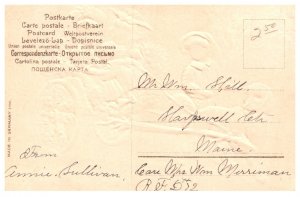 Postkarte
Carte postale - Briefkaart
Postcard Weltpostverein
Levelező-Lap - Dopisnice
Union postale universelle Unione postale universale
Correspondenzkarte - Открытое письмо
Cartolina postale - Tarjeta Postal
ПОЩЕНСКА КАРТА
250
Mr Wm. Hall.
Harpswell Cntr
Maine.
From
Annie Sullivan.
Care Mrs Wm Merriman
R.F.D. 2
MADE IN GERMANY